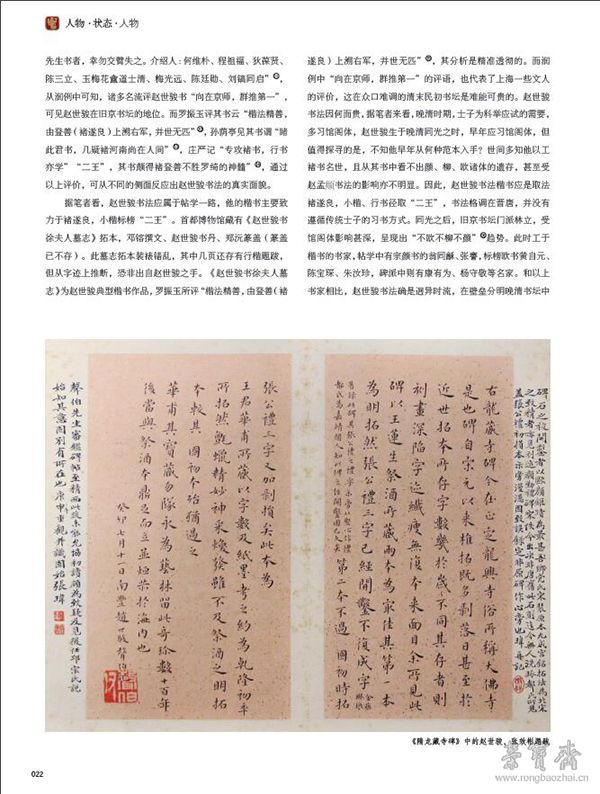 人物·状态·人物
先生书者，幸勿交臂失之。介绍人：何维朴、程祖福、狄葆贤、
陈三立、玉梅花盦道士清、梅光远、陈廷勋、刘镐同启”
从润例中可知，诸多名流评赵世骏书“向在京师，群推第一”，
可见赵世骏在旧京书坛的地位。而罗振玉评其书云“楷法精善，
由登善（褚遂良）上溯右军，并世无匹”
，孙荫亭见其书谓“睹
此君书，几疑褚河南尚在人间”
，庄严记“专攻褚书，行书
亦学”“二王”，其书颇得褚登善不胜罗绮的神髓”
，通过
以上评价，可从不同的侧面反应出赵世骏书法的真实面貌。
据笔者看，赵世骏书法应属于帖学一路，他的楷书主要致
力于褚遂良，小楷标榜“二王”。首都博物馆藏有《赵世骏书
徐夫人墓志》拓本，邓镕撰文、赵世骏书丹、郑沅篆盖（篆盖
已不存）。此墓志拓本装裱错乱，其中几页还存有行楷题跋，
但从字迹上推断，恐非出自赵世骏之手。《赵世骏书徐夫人墓
志》为赵世骏典型楷书作品，罗振玉所评“楷法精善，由登善（褚
遂良）上溯右军，并世无匹”
，其分析是精准透彻的。而润
例中“向在京师，群推第一”的评语，也代表了上海一些文人
的评价，这在众口难调的清末民初书坛是难能可贵的。赵世骏
书法因何而贵，据笔者来看，晚清时期，士子为科举应试的需要，
多习馆阁体，赵世骏生于晚清同光之时，早年应习馆阁体，但
值得探寻的是，不知他早年从何种范本入手？世间多知他以工
褚书名世，且从其书中看不出颜、柳、欧诸体的遗存，甚至受
赵孟頫书法的影响亦不明显。因此，赵世骏书法楷书应是取法
褚遂良，小楷、行书径取“二王”，书法格调在晋唐，并没有
遵循传统士子的习书方式。同光之后，旧京书坛门派林立，受
馆阁体影响甚深，呈现出“不欧不柳不颜”
趋势。此时工于
楷书的书家，帖学中有宗颜书的翁同龢、张謇，标榜欧书黄自元、
陈宝琛、朱汝珍，碑派中则有康有为、杨守敬等名家。和以上
书家相比，赵世骏书法确是迥异时流，在壁垒分明晚清书坛中
右龙藏寺碑今在正定龙兴寺俗所称大佛寺
是也碑自宋元以来椎拓既多剥落日甚至于
近世拓本所存字数几于岁不同其存者则
刻画深陷字迹纤瘦无复本来面目余所见此
碑以王莲生祭酒所藏两本为冣佳其第一本
为明拓然张公礼三字已经开凿不复成字
第二本不过国初时拓
张公礼三字又加剥损矣此本为
王君华甫所藏以字数及纸墨考之约为乾隆初年
所拓然毡蜡精妙神采焕发虽不及祭酒之明拓
本较其国初本殆犹过之
华甫其宝藏勿队永为艺林留此奇珍数十百年
后当与祭酒本鼎足而立并烜荣于海内也
癸卯七月十一日南丰赵世骏声伯记
《隋龙藏寺碑》中的赵世骏、张效彬题跋
022
荣宝斋
www.rongbaozhai.cn